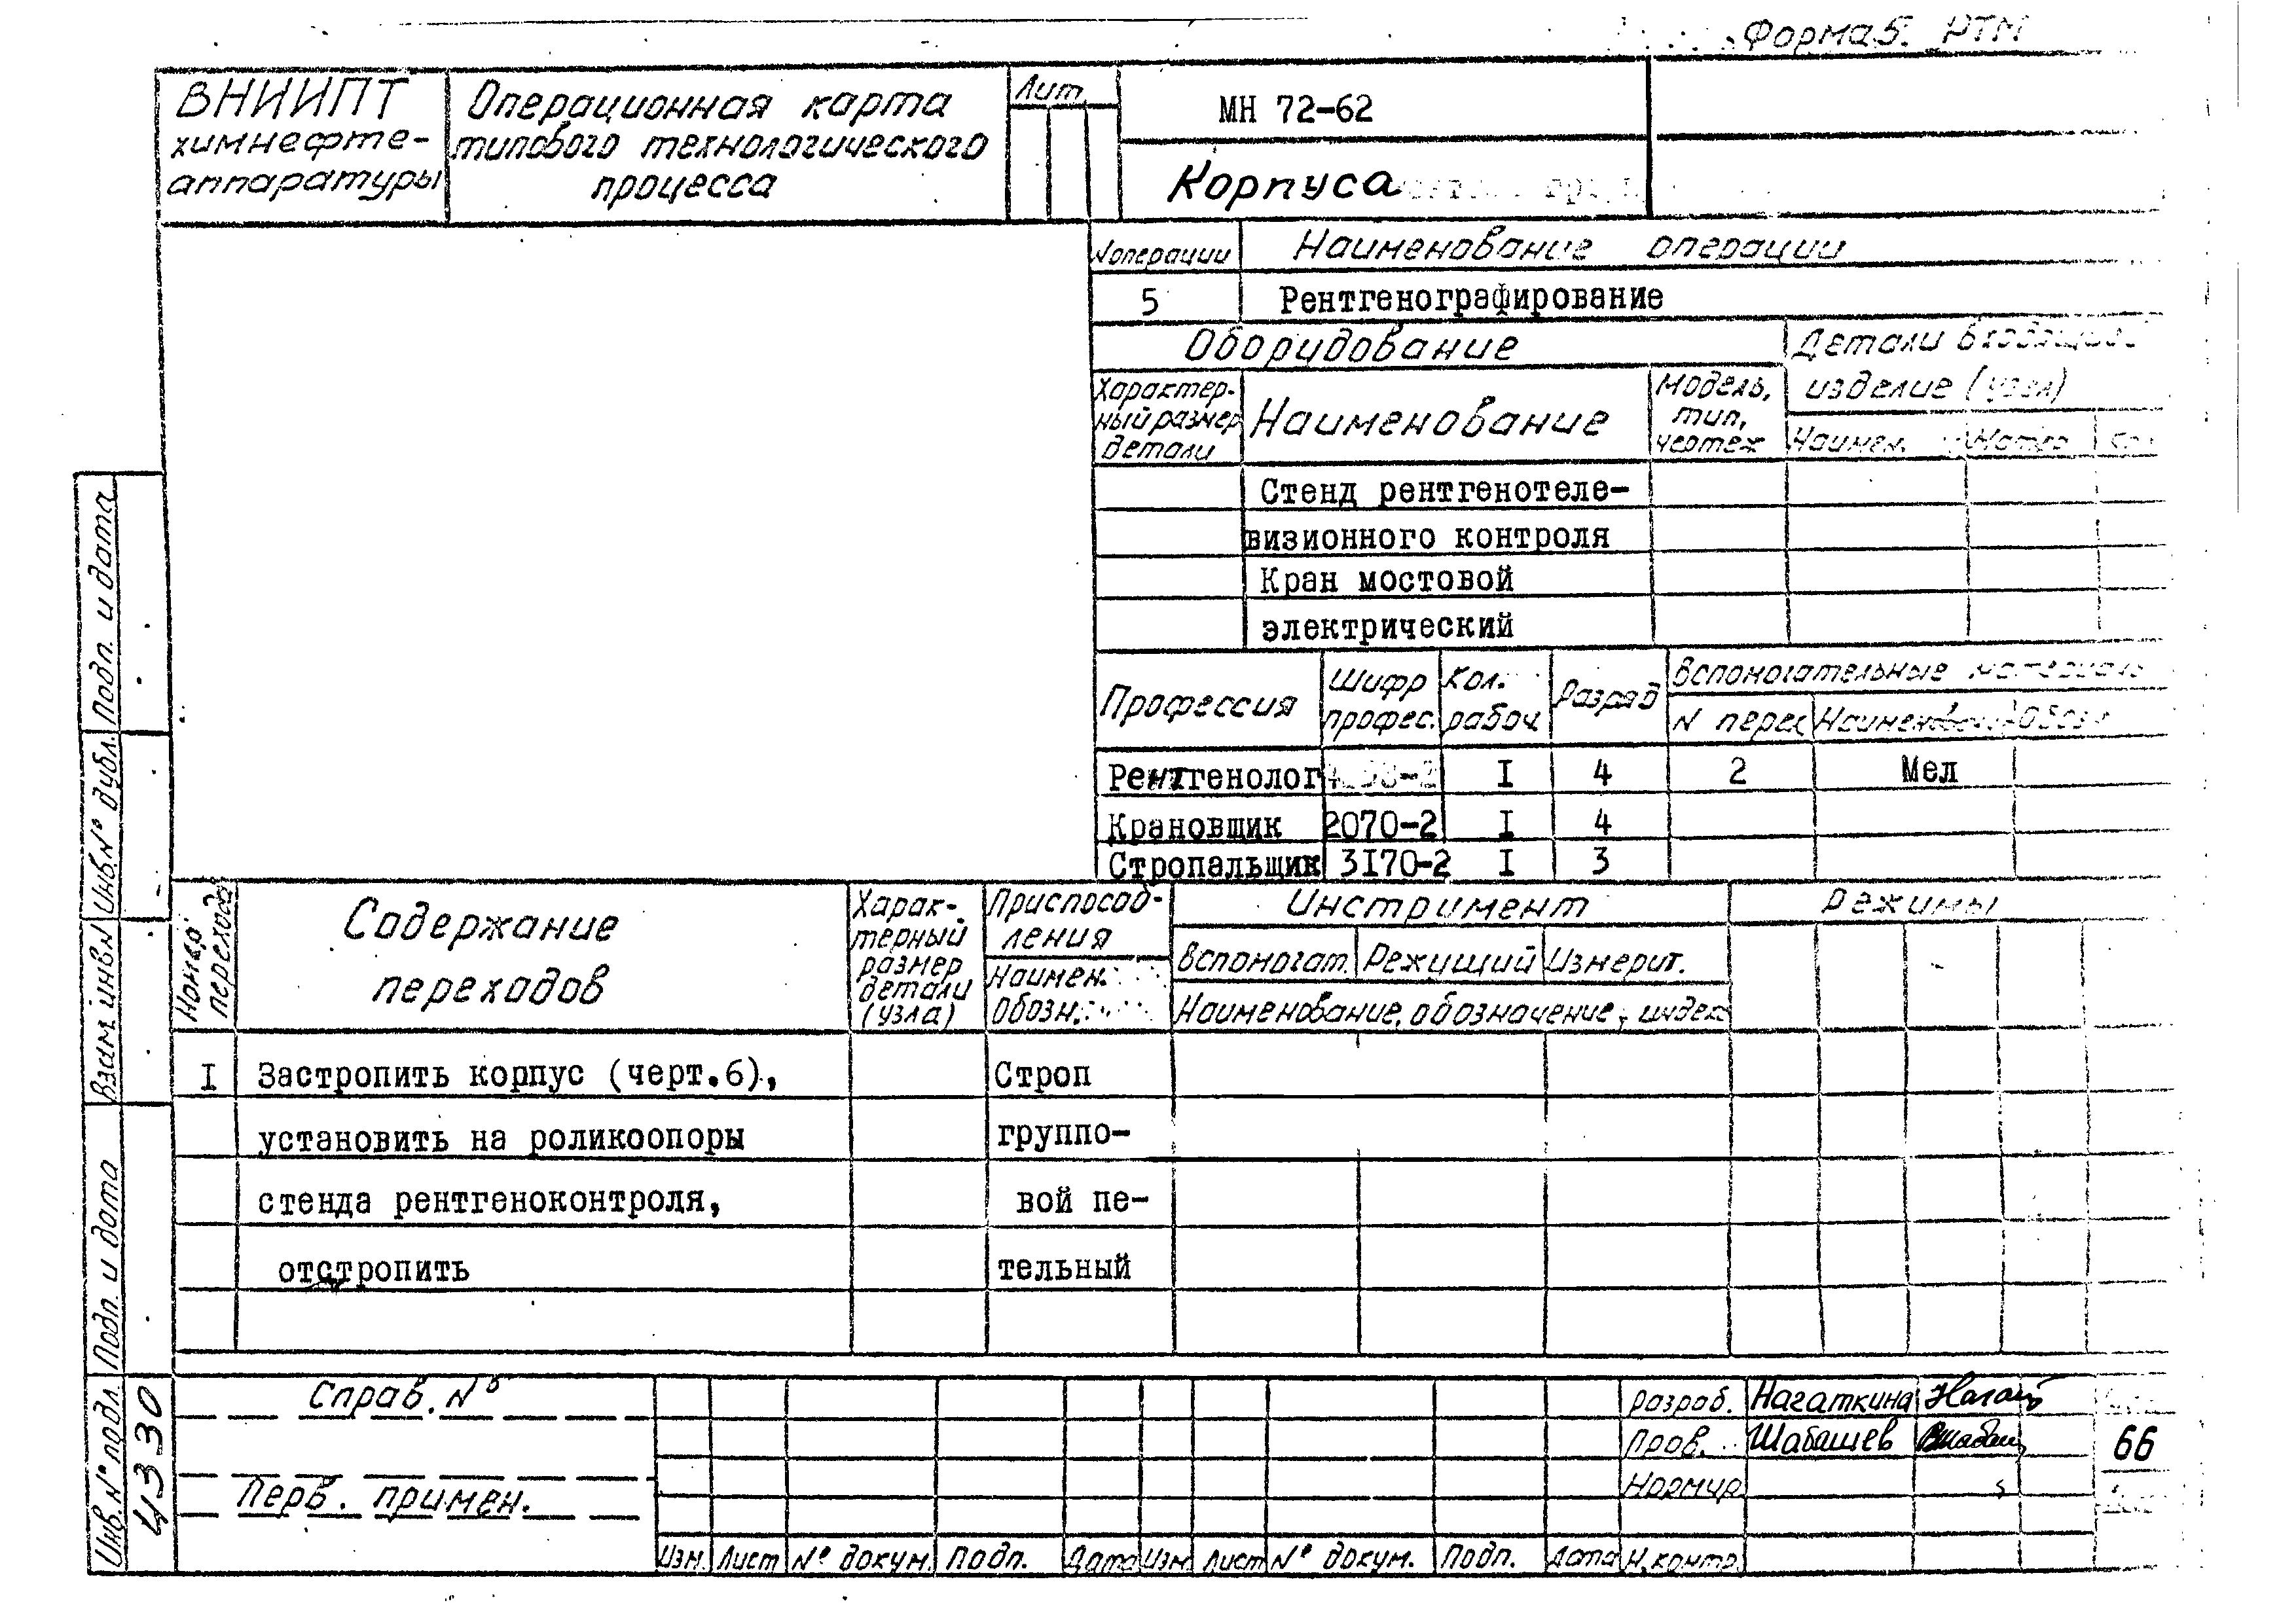 Форма 5. РТМ
ВНИИПТ
химнефте-
аппаратуры
Операционная карта
типового технологического
процесса
Лит
МН 72-62
Корпуса
№операции Наименование операции
5 Рентгенографирование
Оборудование
Детали входящие
изделие (узел)
Характер-
ный размер
детали
Наименование
Модель,
тип,
чертеж
Наимен.
Стенд рентгенотеле-
визионного контроля
Кран мостовой
электрический
Профессия
Шифр
профес.
Кол.
рабоч
Разряд
Вспомогательные
N перех
Рентгенолог I 4 2 Мел
Крановщик 2070-2 I 4
Стропальщик 3I70-2 I 3
Номер
перехода
Содержание
переходов
Харак-
терный
размер
детали
(узла)
Приспособ-
ления
Наимен.
обозн.
Инструмент
Вспомогат. Режущий Измерит.
Наименование, обозначение, индекс
Режимы
I Застропить корпус (черт.6), Строп
установить на роликоопоры группо-
стенда рентгеноконтроля, вой пе-
отстропить тельный
Справ. №
Перв. примен.
Разраб. Нагаткина
Пров. Шабашев
Нормир.
66
Изм. Лист № докум. Подп. Дата Изм. Лист № докум. Подп. Дата Н.контр.
Подп. и дата
Инв.№ дубл.
Взам инв.№
Подп. и дата
Инв.№ подл
4330